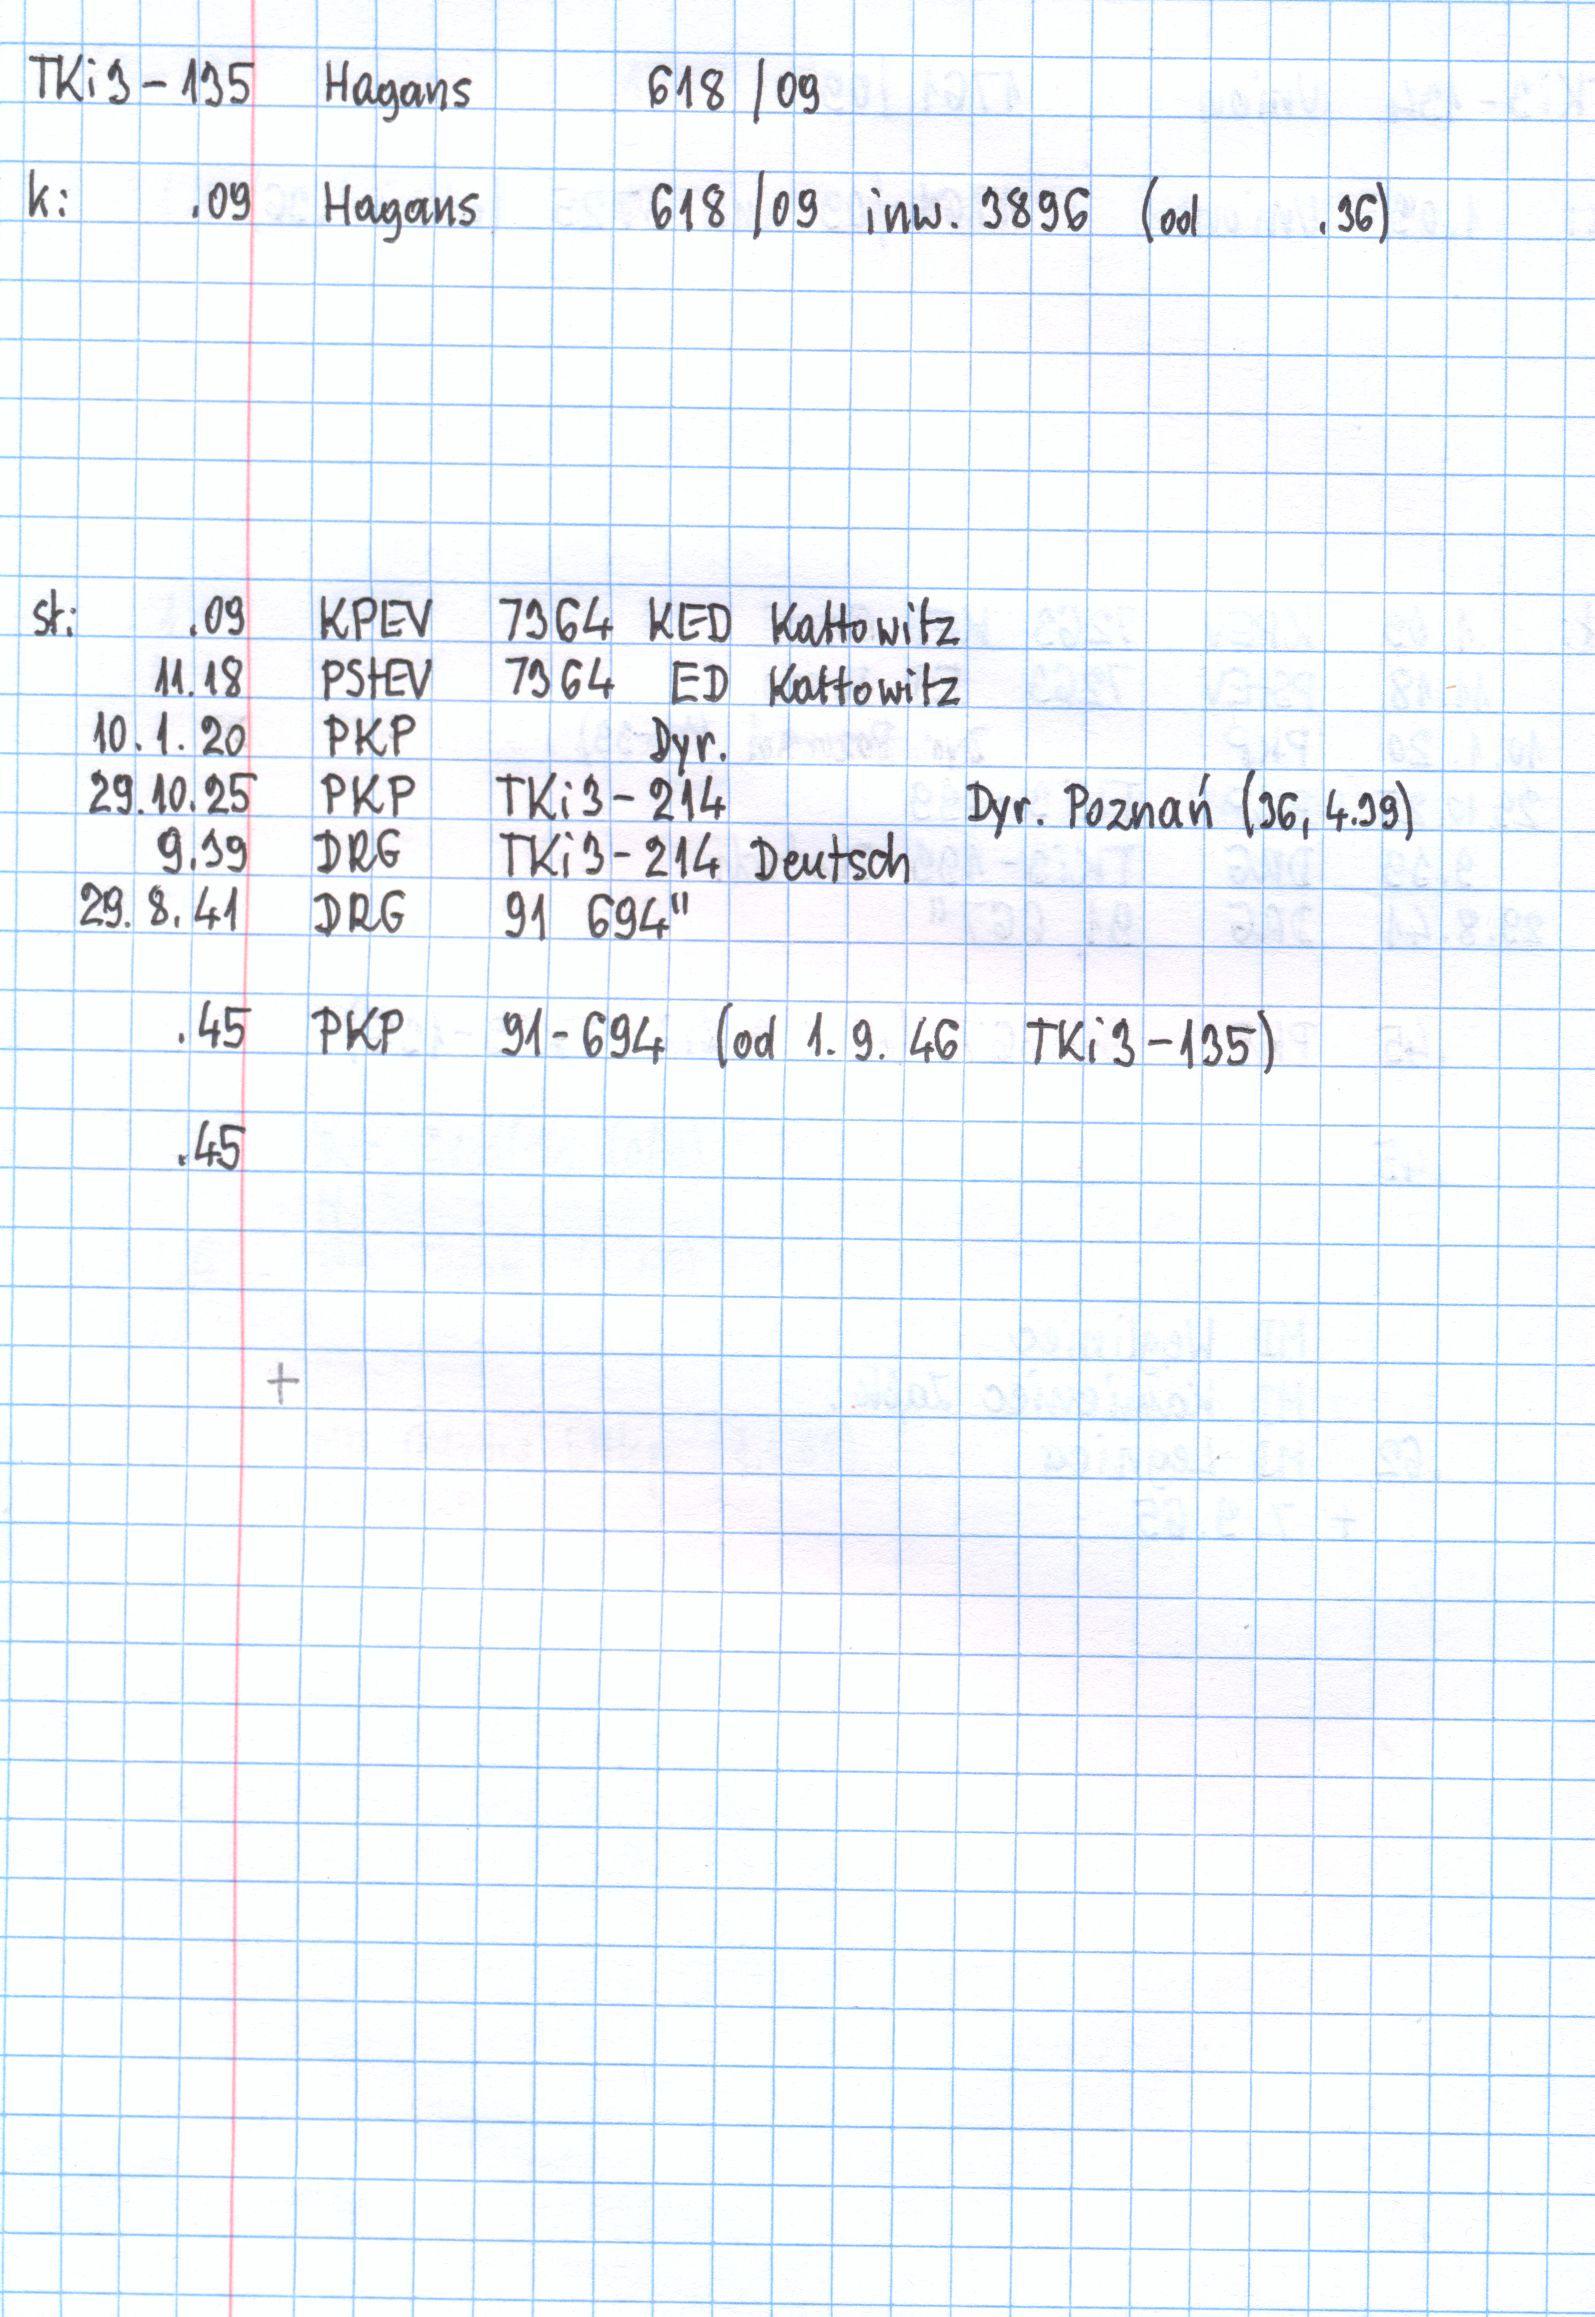 TKi3-135 Hagans 618/09
k: .09 Hagans 618/09 inw. 3896 (od .36)
st: .09 KPEV 7364 KED Kattowitz
11.18 PStEV 7364 ED Kattowitz
10.1.20 PKP Dyr.
29.10.25 PKP TKi3-214 Dyr. Poznań (36, 4.39)
9.39 DRG TKi3-214 Deutsch
29.8.41 DRG 91 694"
.45 PKP 91-694 (od 1.9.46 TKi3-135)
.45
+